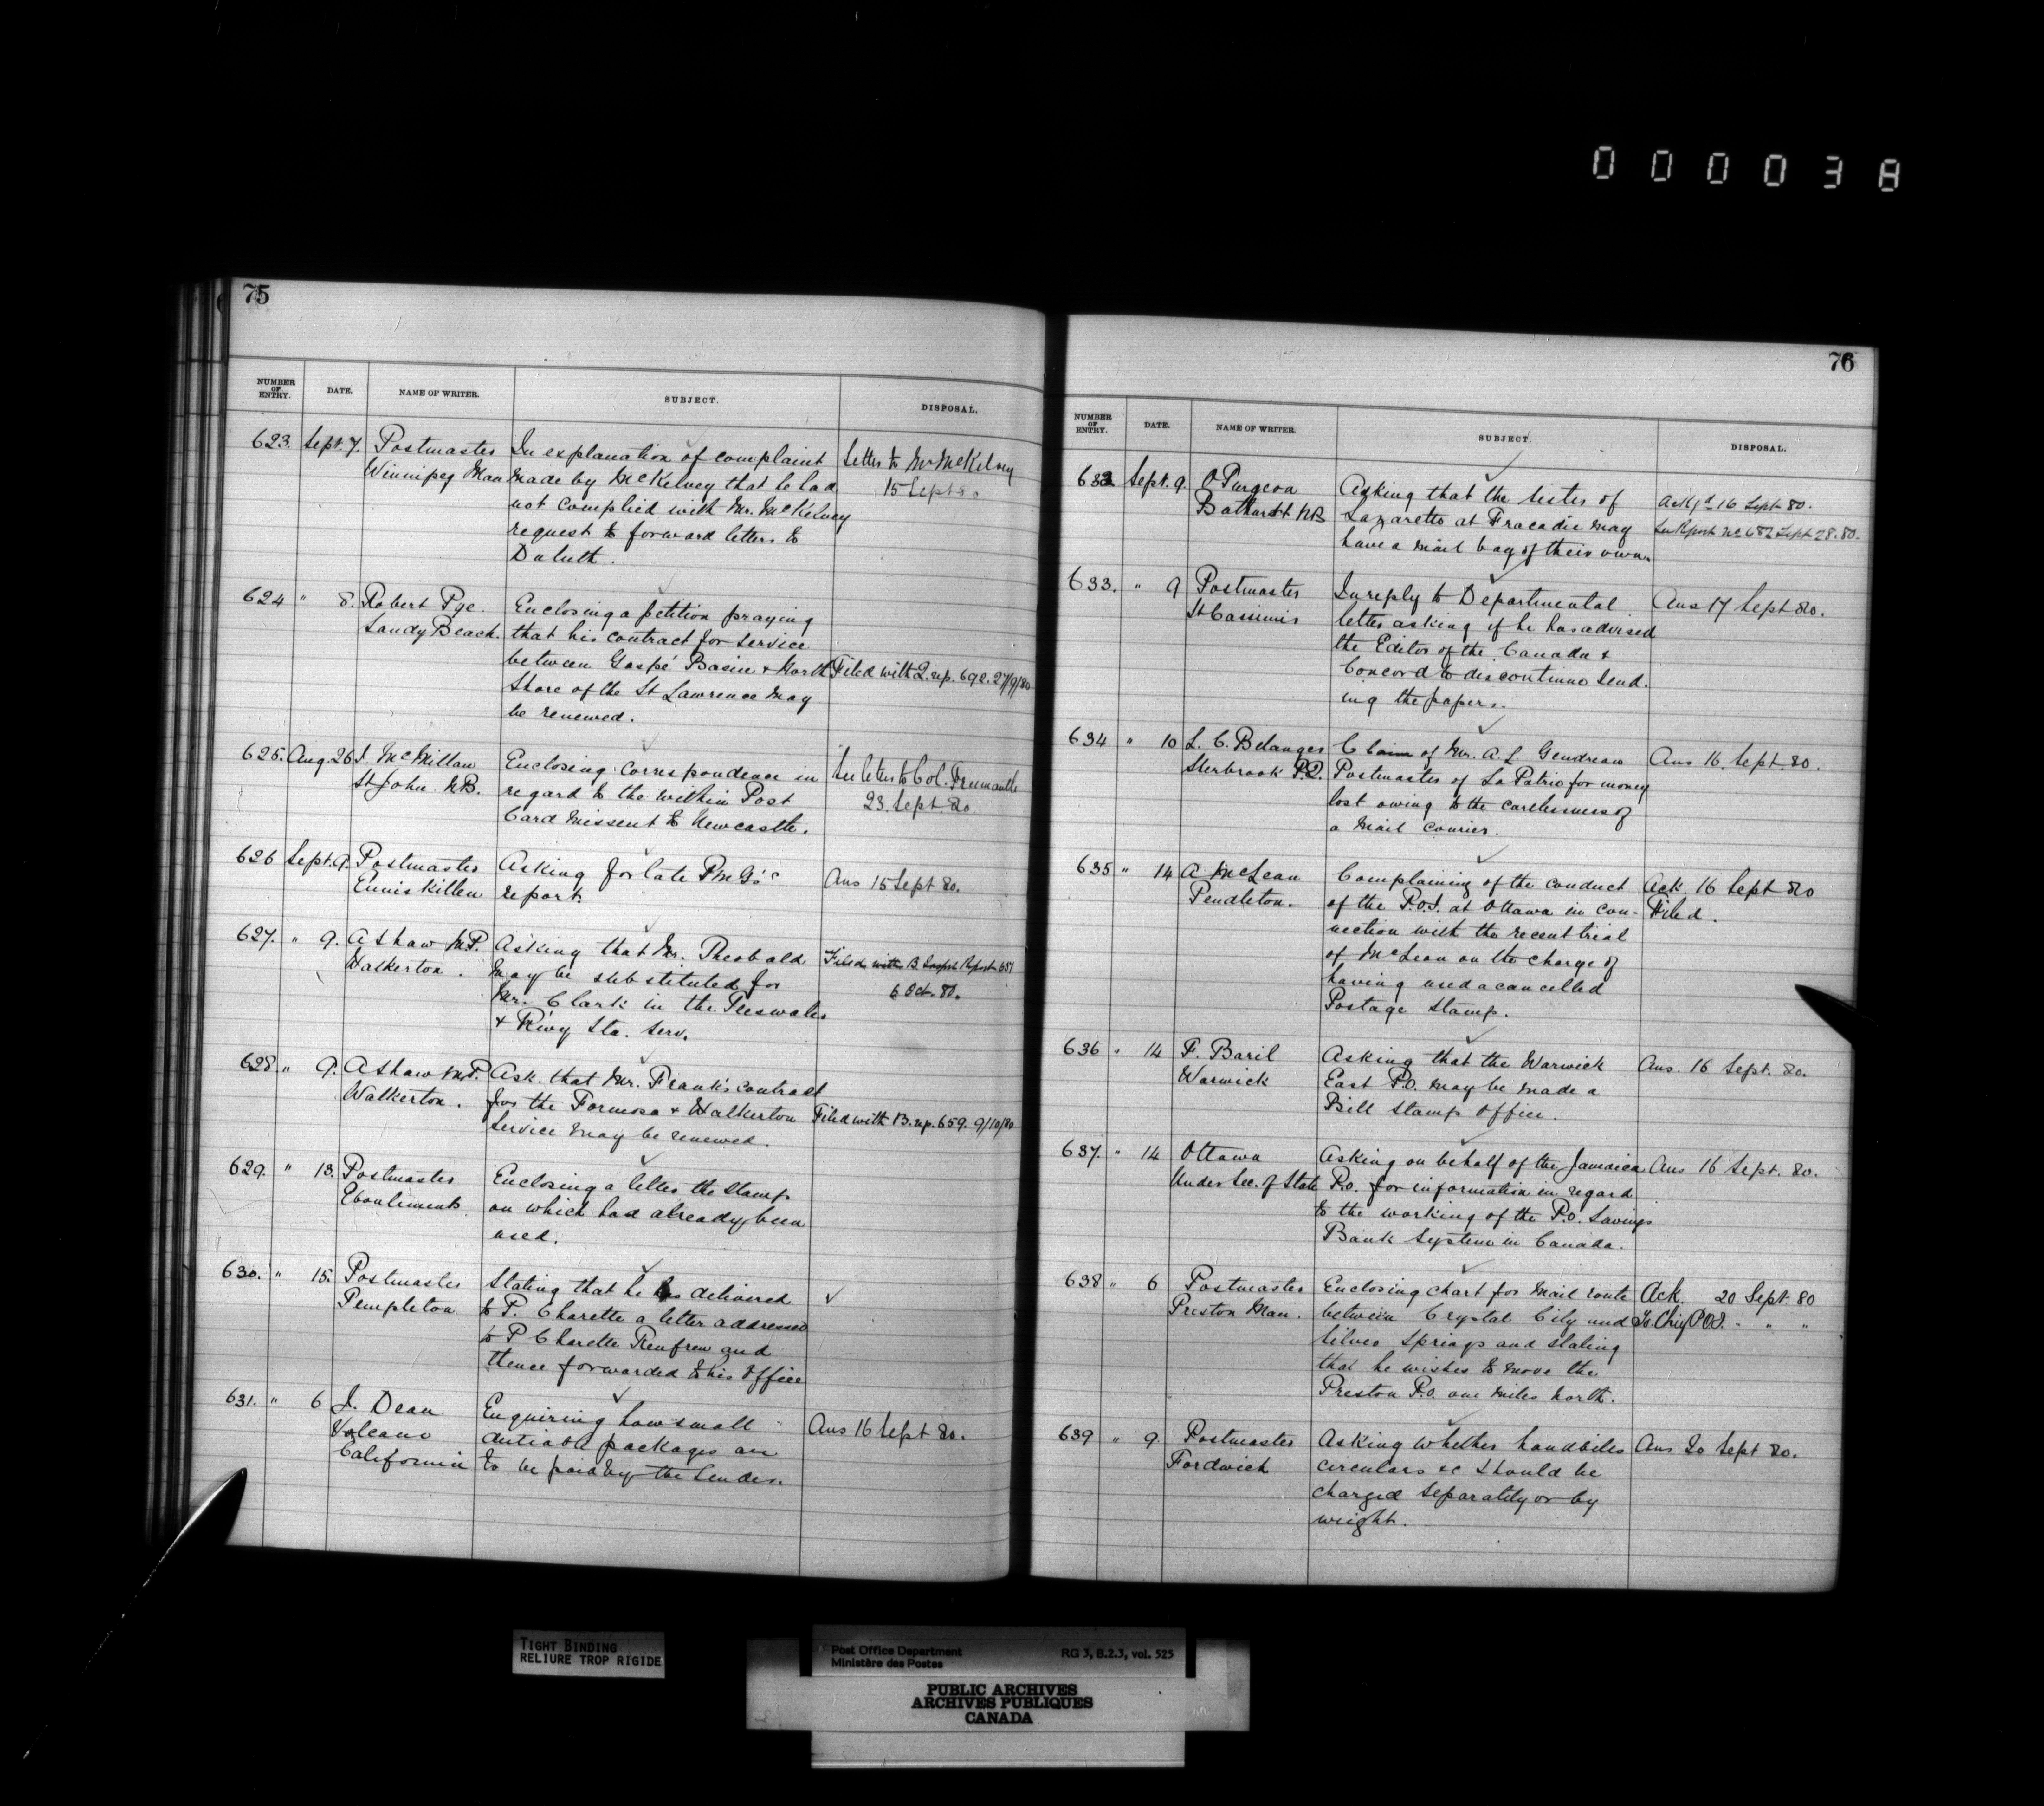 000038
75
NUMBER OF ENTRY. DATE. NAME OF WRITER. SUBJECT. DISPOSAL.
623. Sept. 7. Postmaster In explanation of complaint Letter to Mr McKelvey
Winnipeg Man made by McKelvey that he had 15 Sept 80
not complied with Mr. McKelvey
request to forward letters to
Duluth.
624 " 8. Robert Pye. Enclosing a petition praying
Sandy Beach. that his contract for service
between Gaspé Basin & North Filed with Q. rep. 692. 27/9/80
Shore of the St Lawrence may
be renewed.
625. Aug. 26 J. McMillan Enclosing correspondence in See letter to Col. Fremantle
St John NB. regard to the within Post 23. Sept 80
Card missent to Newcastle.
626 Sept. 9. Postmaster Asking for late PMG's Ans 15 Sept 80.
Enniskillen report.
627. " 9. A Shaw M.P. Asking that Mr. Theobald Filed with B. Inspr's Report 651
Walkerton. may be substituted for 6 Oct. 80.
Mr. Clark in the Teeswater
& Rlwy Sta. serv.
628. " 9. A Shaw M.P. Ask. that Mr. Frank's contract
Walkerton. for the Formosa & Walkerton Filed with B. rep. 659. 9/10/80
Service may be renewed.
629. " 13. Postmaster Enclosing a letter the stamp
Eboulements on which had already been
used.
630. " 15. Postmaster Stating that he has delivered
Templeton to P. Charette a letter addressed
to P Charette Renfrew and
thence forwarded to his Office
631. " 6 J. Dean Enquiring how small Ans 16 Sept 80.
Volcano dutiable packages are
California to be paid by the Sender.
76
NUMBER OF ENTRY. DATE. NAME OF WRITER. SUBJECT. DISPOSAL.
632 Sept. 9. O Turgeon Asking that the sisters of Ack'gd 16 Sept 80.
Bathurst NB Lazaretto at Tracadie may See Report No 682 Sept 28. 80.
have a mail bag of their own.
633. " 9 Postmaster In reply to Departmental Ans 17 Sept 80.
St Cassimir letter asking if he has advised
the Editor of the Canada &
Concord to discontinue send-
ing the papers.
634 " 10 L. C. Belanger Claim of Mr. A. L. Gendreau Ans 16. Sept. 80.
Sherbrook P.Q. Postmaster of La Patrie for money
lost owing to the carelessness of
a Mail Courier.
635 " 14 A McLean Complaining of the conduct Ack. 16 Sept 80
Pendleton. of the P.O.I. at Ottawa in con- Filed.
nection with the recent trial
of McLean on the charge of
having used a cancelled
Postage Stamp.
636 " 14 F. Baril Asking that the Warwick Ans. 16 Sept. 80.
Warwick East P.O. may be made a
Bill Stamp Office.
637. " 14 Ottawa Asking on behalf of the Jamaica Ans 16 Sept. 80.
Under Sec. of State P.O. for information in regard
to the working of the P.O. Savings
Bank System in Canada.
638 " 6 Postmaster Enclosing chart for Mail route Ack. 20 Sept. 80
Preston Man. between Crystal City and To Chief P.O.I. " " "
Silver Springs and stating
that he wishes to move the
Preston P.O. one miles North.
639 " 9. Postmaster Asking whether handbills Ans 20 Sept 80.
Fordwich circulars &c should be
charged separately or by
weight.
TIGHT BINDING
RELIURE TROP RIGIDE
Post Office Department RG 3, B.2.3, vol. 525
Ministère des Postes
PUBLIC ARCHIVES
ARCHIVES PUBLIQUES
CANADA